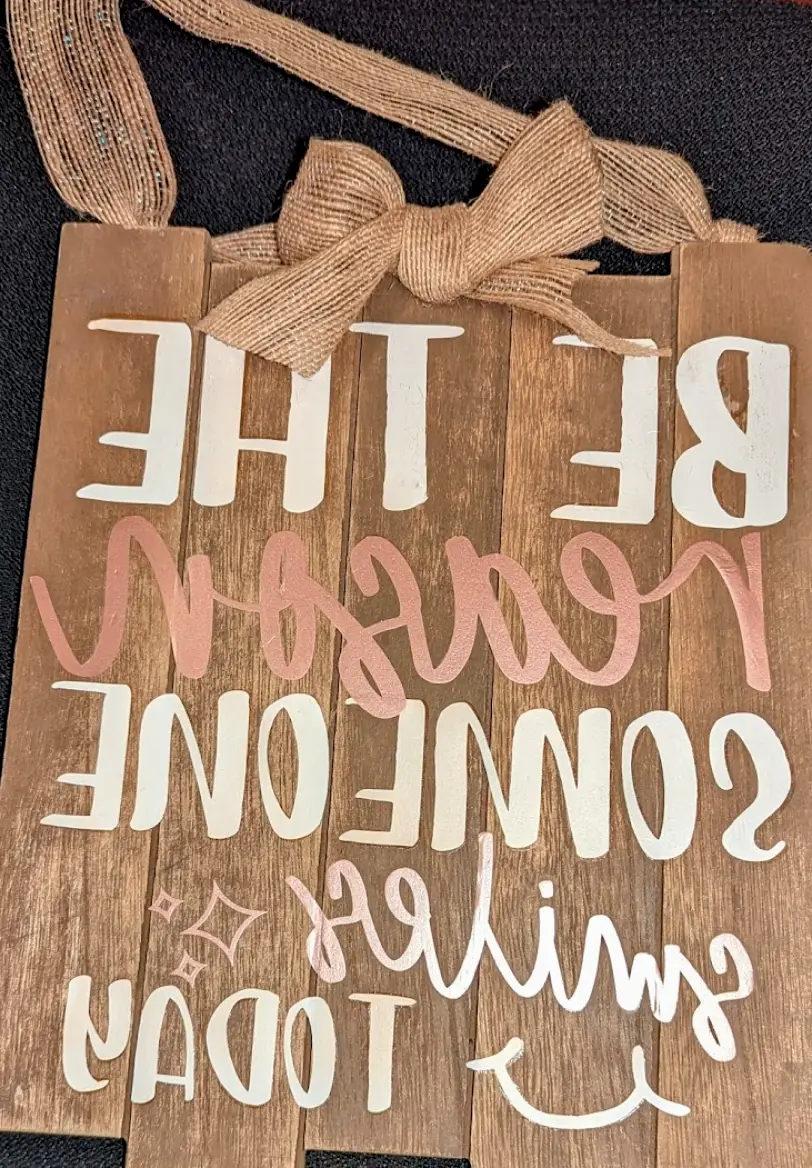 BE THE
reason
SOMEONE
smiles
TODAY